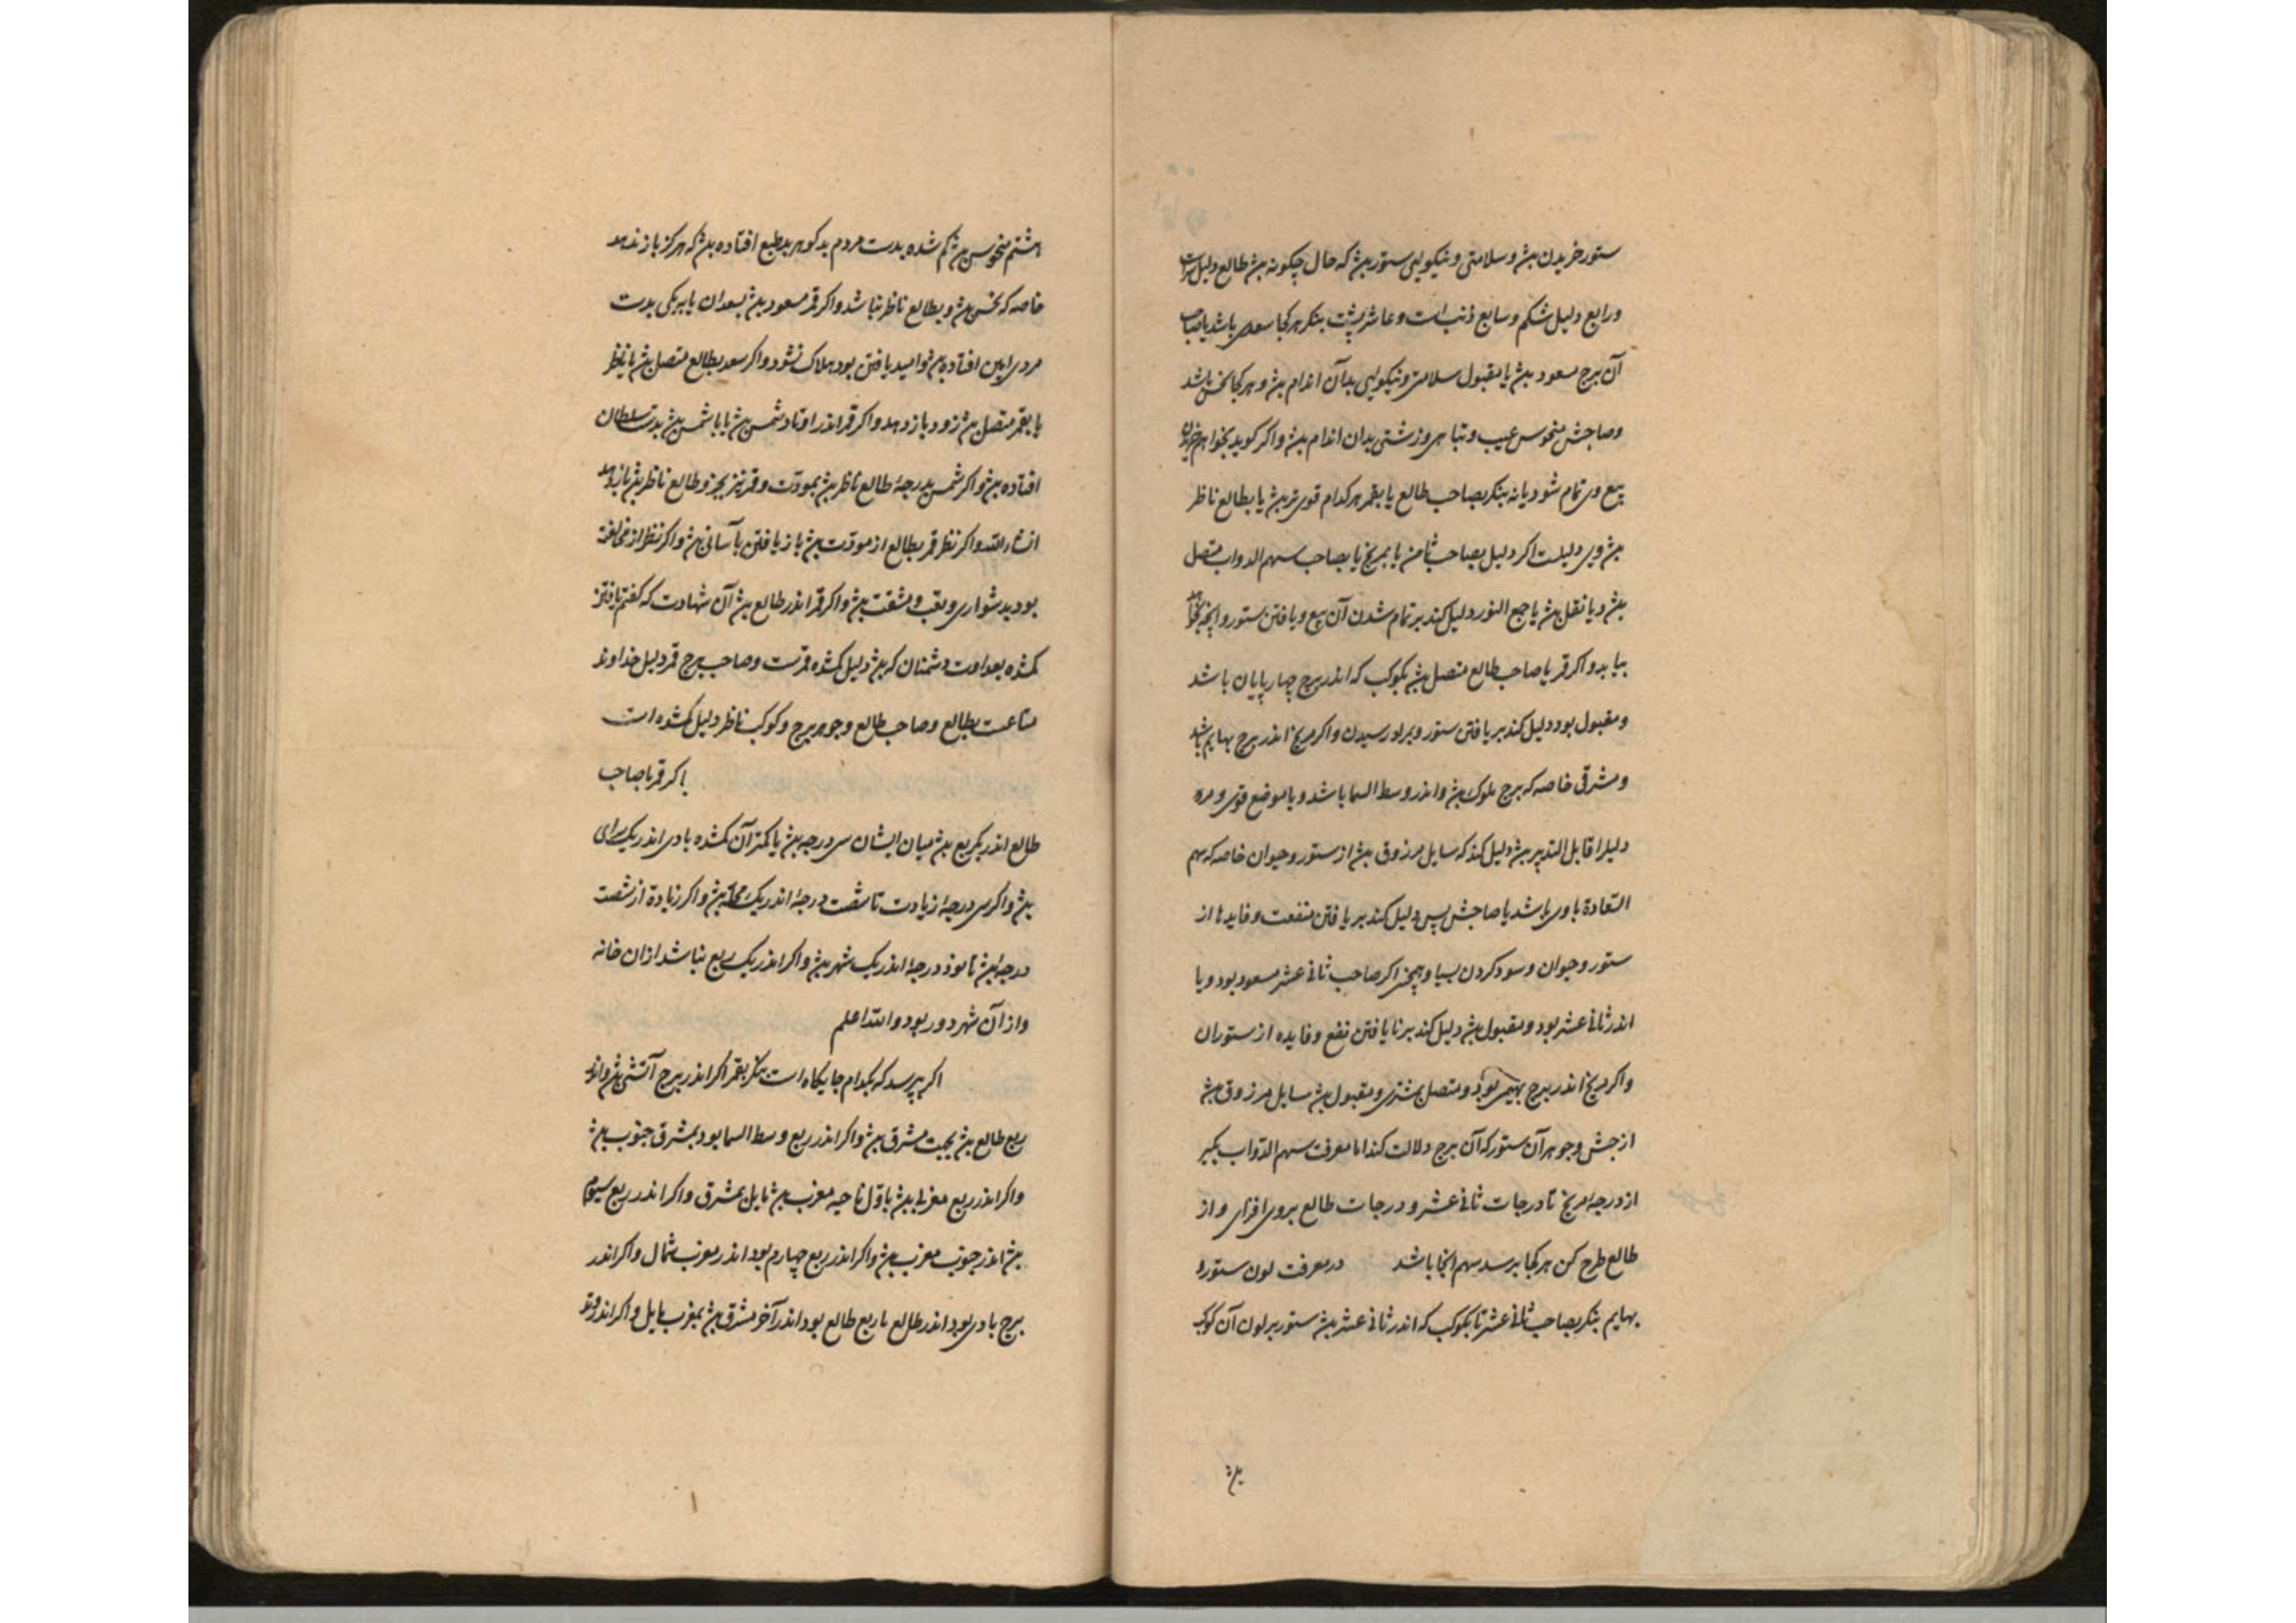 ستور خریدن بش و سلامتی و نیکویی ستور بش که حال چکونه بش طالع دلیل سرست
و رابع دلیل شکم و سابع ذنب است و عاشر پشت بنکر هر کجا سعدی باشد یا صاحب
آن برج مسعود بش یا مقبول سلامتی و نیکویی بدآن اندام بش و هر کجا نحس باشد
و صاحبش منحوس عیب و تباهی و زشتی بدان اندام بش و اکر کوید بخواهم خریدن
بیع وی تمام شود یا نه بنکر بصاحب طالع یا بقمر هر کدام قوی تر بش یا بطالع ناظر
بش وی دلیلست اکر دلیل بصاحب ثامن یا بمریخ یا بصاحب سهم الدواب متصل
بش و یا نقل بش یا جمع النور دلیل کند بر تمام شدن آن بیع و یافتن ستور و آنچه بخواهد
بیابد و اکر قمر یا صاحب طالع متصل بش بکوکب که اندر برج چهارپایان باشد
و مقبول بود دلیل کند بر یافتن ستور و بر او رسیدن و اکر مریخ اندر برج بهایم باشد
و مشرقی خاصه که برج ملوک بش و اندر وسط السما باشد و یا موضع قوی و مر
دلیل را قابل التدبیر بش دلیل کند که سایل مرزوق بش از ستور و حیوان خاصه که سهم
السعادة با وی باشد یا صاحبش پس دلیل کند بر یافتن منفعت و فایدها از
ستور و حیوان و سود کردن بسیا و همچنین اکر صاحب ثانی عشر مسعود بود و یا
اندر ثانی عشر بود و مقبول بش دلیل کند بر نایافتن نفع و فایده از ستوران
و اکر مریخ اندر برج بهیمی بود و متصل بمشتری و مقبول بش سایل مرزوق بش
از جنش و جوهر آن ستور که آن برج دلالت کند اما معرفت سهم الدواب بکیر
از درجهٔ مریخ تا درجات ثانی عشر و درجات طالع بروی افزای و از
طالع طرح کن هر کجا برسد سهم آنجا باشد در معرفت لون ستور و
بهایم بنکر بصاحب ثانی عشر تا بکوکب که اندر ثانی عشر بش ستور بر لون آن کوکب
بش
هشتم منحوس بش کم شده بدست مردم بد کوهر بد طبع افتاده بش که هرکز باز ندهد
خاصه که نحس بش و بطالع ناظر نباشد و اکر قمر مسعود بش بسعدان یا بیکی بدست
مردی امین افتاده بش و امید یافتن بود هلاک نشود و اکر سعد بطالع متصل بش یا ناظر
یا بقمر متصل بش زود باز دهد و اکر قمر اندر اوتاد شمس بش یا با شمس بش بدست سلطان
افتاده بش و اکر شمس بدرجهٔ طالع ناظر بش بمودّت و قمر نیز بجزو طالع ناظر بش باز دهد
انشاء الله و اکر نظر قمر بطالع از مودّت بش باز یافتن بآسانی بش و اکر نظر از مخالفت
بود بدشواری و تعب و مشقت بش و اکر قمر اندر طالع بش آن شهادت که کفتم یافتن
کمشده بعداوت دشمنان که بش دلیل کمشده قمرست و صاحب برج قمر دلیل خداوند
متاعست بطالع و صاحب طالع و جوهر برج و کوکب ناظر دلیل کمشده است
اکر قمر با صاحب
طالع اندر یکربع بش میان ایشان سی درجه بش یا کمتر آن کمشده با وی اندر یک سرای
بش و اکر سی درجهٔ زیادت تا شصت درجهٔ اندر یک محله بش و اکر زیادة از شصت
درجه بش تا نود درجهٔ اندر یک شهر بش و اکر اندر یک ربع نباشد ازان خانه
و از آن شهر دور بود و الله اعلم
اکر پرسد که بکدام جایکاه است بنکر بقمر اکر اندر برج آتشی بش و اندر
ربع طالع بش بجهت مشرق بش و اکر اندر ربع وسط السما بود بمشرق جنوب بش
و اکر اندر ربع مغربی بش باوّل ناحیه مغرب بش مایل بمشرق و اکر اندر ربع سیوم
بش اندر جنوب مغرب بش و اکر اندر ربع چهارم بود اندر مغرب شمال و اکر اندر
برج بادی بود اندر طالع یا ربع طالع بود اندر آخر مشرق بش بمغرب مایل و اکر اندر وتد